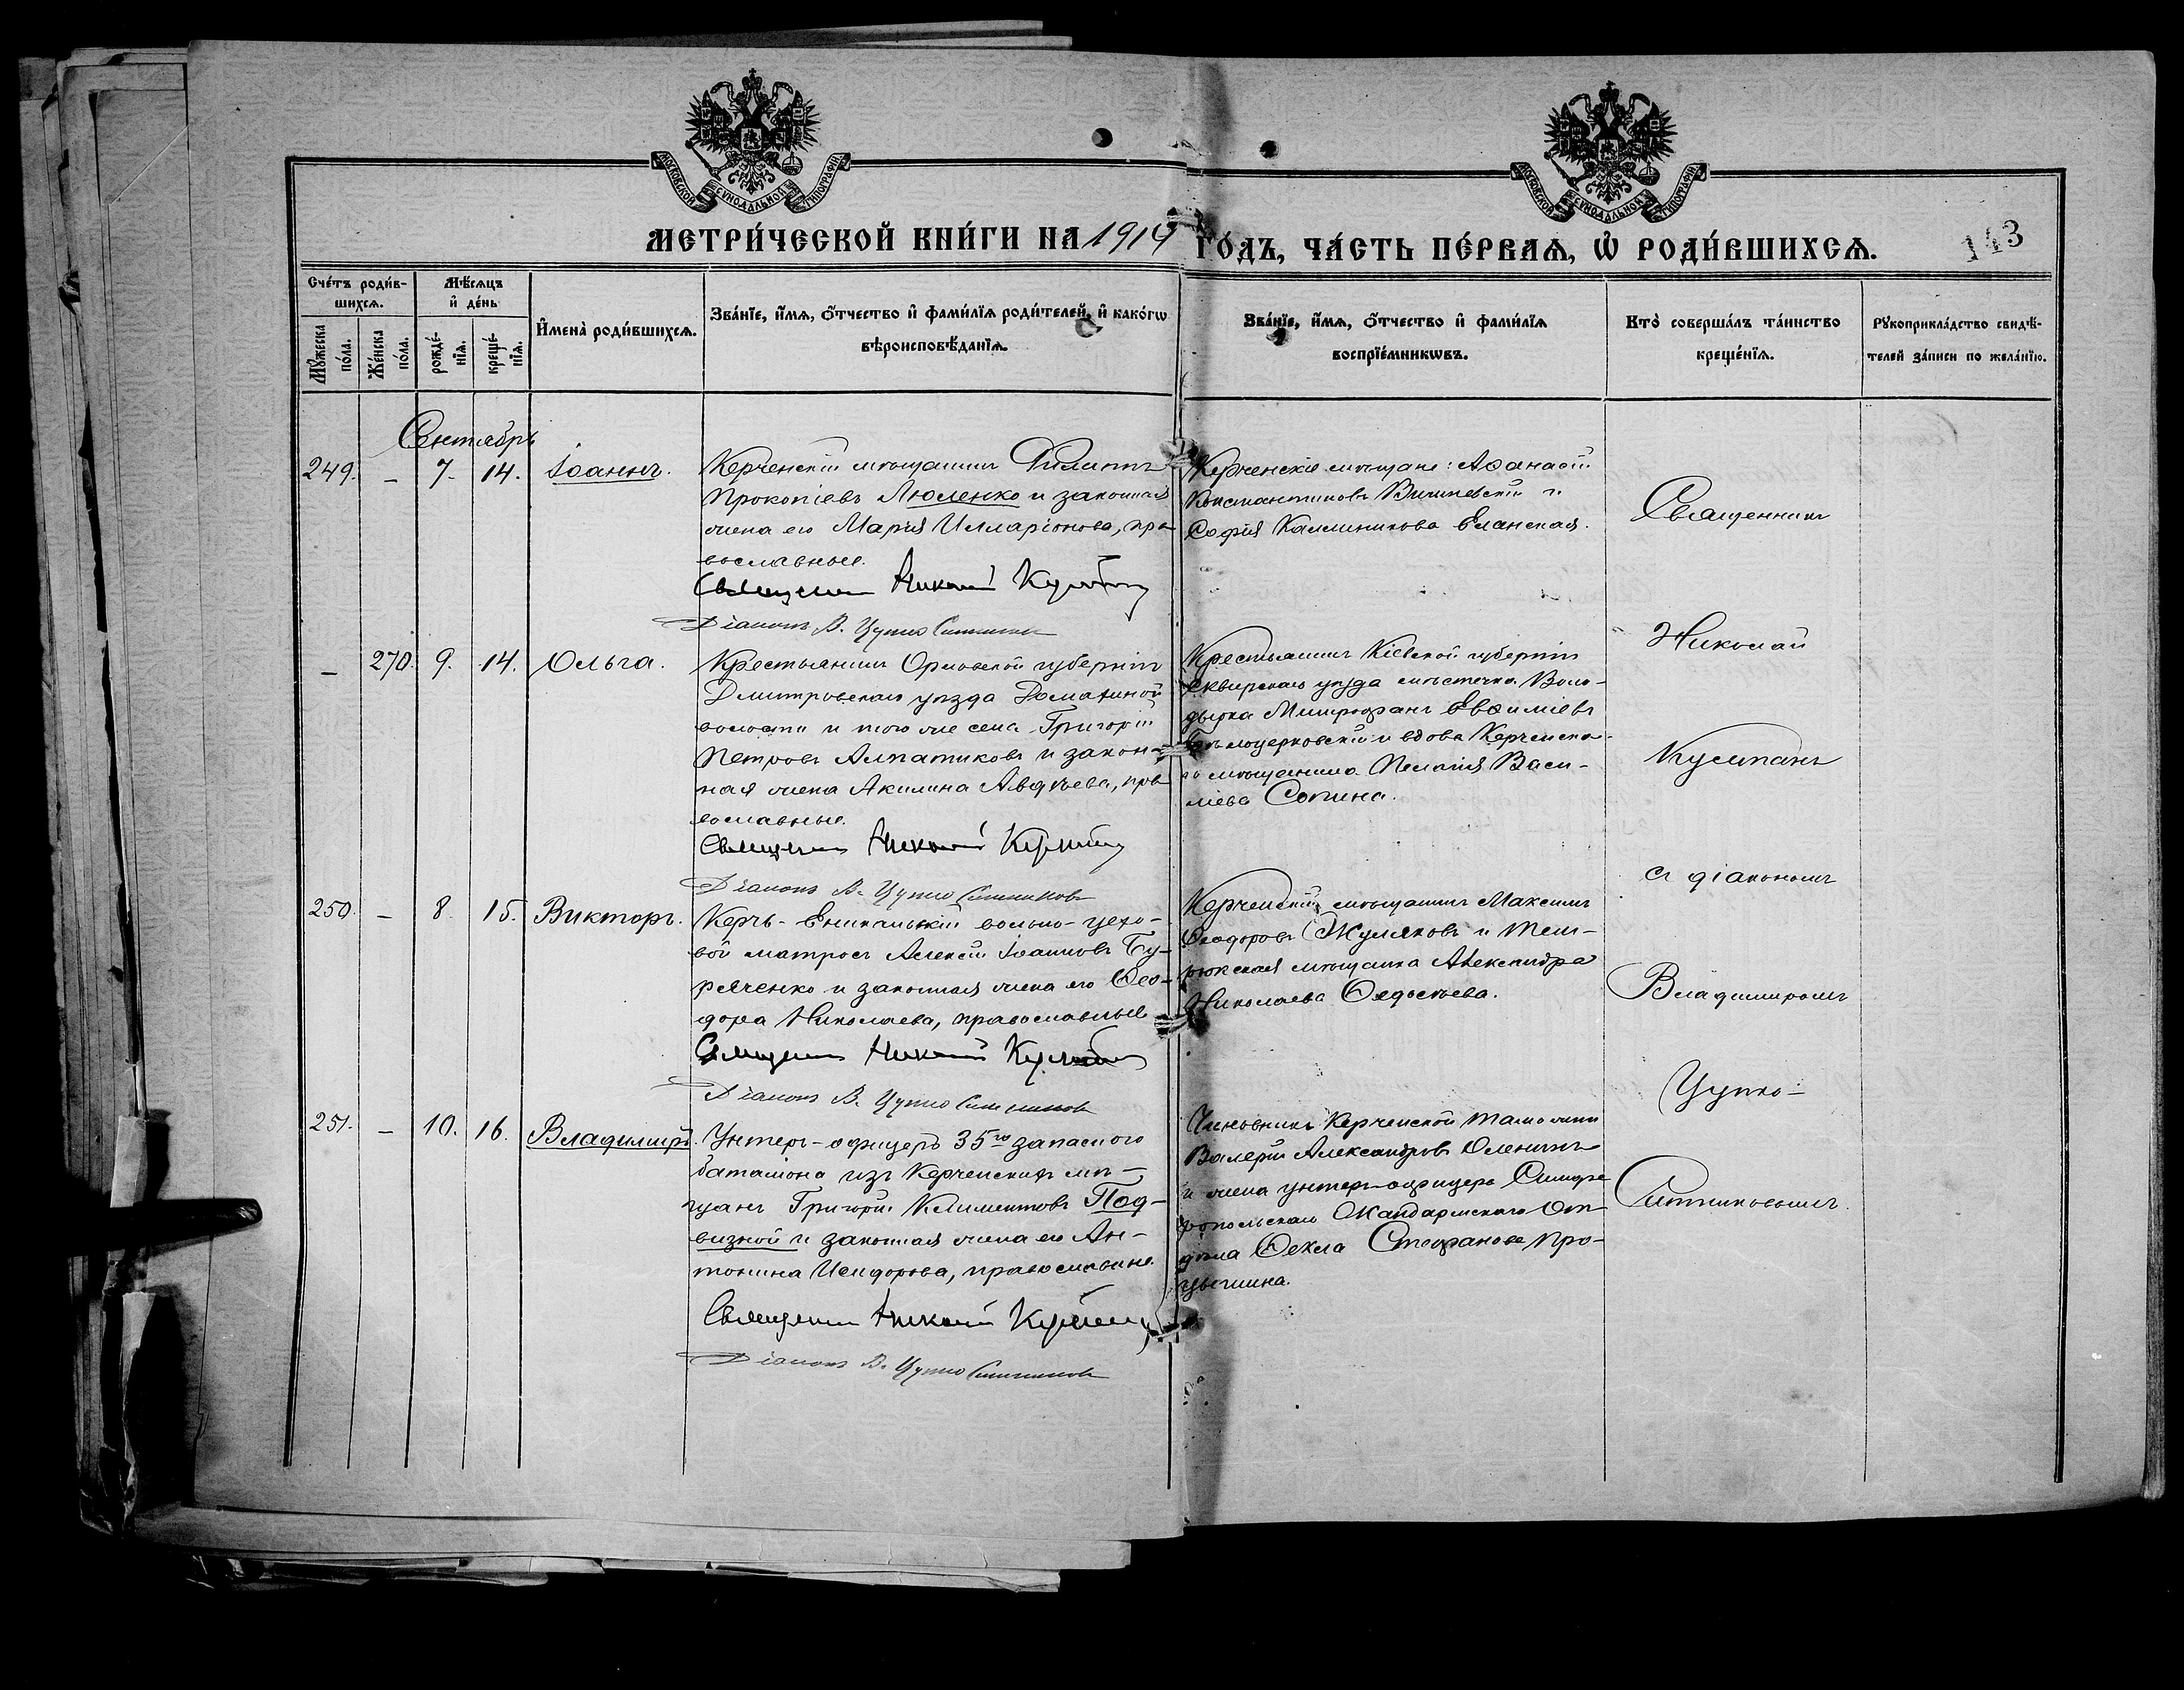 МОСКОВСКОЙ СѴНОДАЛЬНОЙ ТИПОГРАФІИ
МОСКОВСКОЙ СѴНОДАЛЬНОЙ ТИПОГРАФІИ
МЕТРИ́ЧЕСКОЙ КНИ́ГИ НА 1914 ГО́ДЪ, ЧА́СТЬ ПЕ́РВАѦ, Ѽ РОДИ́ВШИХСѦ.
143
Сче́тъ роди́в-
шихсѧ.
Мѣ́сѧцъ
и҆ де́нь
Мꙋ́жеска
по́ла.
Же́нска
по́ла.
рожде́-
нїѧ.
креще́-
нїѧ.
И҆мена̀ роди́вшихсѧ.
Зва́нїе, и҆́мѧ, ѻ҆́тчество и҆ фами́лїѧ роди́телей, и҆ како́гѡ
вѣроисповѣ́данїѧ.
Зва́нїе, и҆́мѧ, ѻ҆́тчество и҆ фами́лїѧ
воспрїе́мникѡвъ.
Кто̀ соверша́лъ та́инство
креще́нїѧ.
Рꙋкоприкла́дство свидѣ́-
телей за́писи по жела́нїю.
Сентябрь
249. – 7. 14. Іоаннъ.
Керченскій мѣщанинъ Филиппъ
Прокопіевъ Люленко и законная
жена его Марія Илларіонова, пра-
вославные.
Священникъ Николай
Діаконъ В. Цупко Ситниковъ
Керченскіе мѣщане: Аѳанасій
Константиновъ Вишневскій и
Софія Каллиникова Еланская.
– 270. 9. 14. Ольга.
Крестьянинъ Орловской губерніи
Дмитровскаго уѣзда Домахиной
волости и того же села Григорій
Петровъ Алпатиковъ и закон-
ная жена Акилина Авдѣева, пра-
вославные.
Священникъ Николай
Діаконъ В. Цупко Ситниковъ
Крестьянинъ Кіевской губерніи
Сквирскаго уѣзда мѣстечка Воло-
дырка Митрофанъ Евѳиміевъ
Бѣлоцерковскій и вдова Керченска-
го мѣщанина Пелагія Васи-
ліева Сопина.
250. – 8. 15. Викторъ.
Керчь-Еникальскій вольно-цехо-
вой матросъ Алексій Іоанновъ Бу-
ряченко и законная жена его Ѳео-
дора Николаева, православные
Священникъ Николай
Діаконъ В. Цупко Ситниковъ
Керченскій мѣщанинъ Максимъ
Ѳеодоровъ Жуляковъ и Тем-
рюкская мѣщанка Александра
Николаева
251. – 10. 16. Владиміръ.
Унтеръ-офицеръ 35го запаснаго
баталіона изъ Керченскихъ мѣ-
щанъ Григорій Климентовъ Под-
визной и законная жена его Ан-
тонина Исидорова, православные.
Священникъ Николай
Діаконъ В. Цупко Ситниковъ
Чиновникъ Керченской таможни
Валерій Александровъ Оленинъ
и жена унтеръ-офицера Симфе-
ропольскаго Жандармскаго От-
дѣла Ѳекла Стефанова Про-
Священникъ
Николай
съ діакономъ
Владиміромъ
Цупко-
Ситниковымъ.